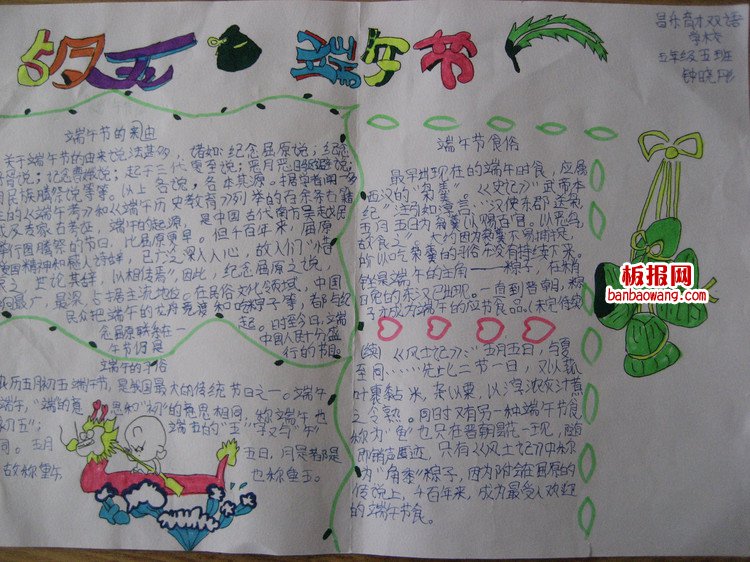 端午节
昌乐育才双语
学校
五年级五班
端午节的来由
关于端午节的由来说法甚多，诸如：纪念屈原说；纪念
说；起于三代夏至说；恶月恶日
民族图腾祭说等等。以上各说，各本其源。据
的《端午考》和《端午历史教育》列举的百余条古籍
端午的起源，是中国古代南方吴越民
举行图腾祭的节日，比屈原更早。但千百年来，屈原
爱国精神和感人诗辞，已广泛深入人心，故人们“惜
之，世论其辞，以相传焉”因此，纪念屈原之说，
响最广、最深，占据主流地位。在民俗文化领域，中国
民众把端午的龙舟竞渡和吃粽子等，都与纪
念屈原联系在
起。时至今日，端
午节仍是
中国人民十分盛
行的节日。
端午的习俗
农历五月初五端午节，是我国最大的传统节日之一。端午
端午，“端”的意思和“初”的意思相同，称端午也
初五”；端五的“五”字又与“午”
同。五月
五日，月是
故称重午
也称重五。
端午节食俗
最早出现在的端午时食，应属
西汉的“枭羹”。《史记》“武帝本
纪”注引如淳言：“汉使东郡送枭，
五月五日为枭羹以赐百官。以恶鸟，
故食之”。大约因为枭羹不易捕捉，
所以吃枭羹的习俗不没有持续下来。
到是端午的主角——粽子，在稍
晚的东汉已出现。一直到晋朝，粽
子亦成为端午的应节食品。（未完待续）
（续）《风土记》：五月五日，与夏
至同……先此二节一日，又以菰
叶裹黏米，杂以粟，以淳浓灰汁煮
之令熟。同时又有另一种端午节食
称为“龟”也只在晋朝昙花一现，随
即销声匿迹，只有《风土记》中称
为“角黍”粽子，因为附会在屈原的
传说上，千百年来，成为最受人欢迎
的端午节食。
板报网
banbaowang.com